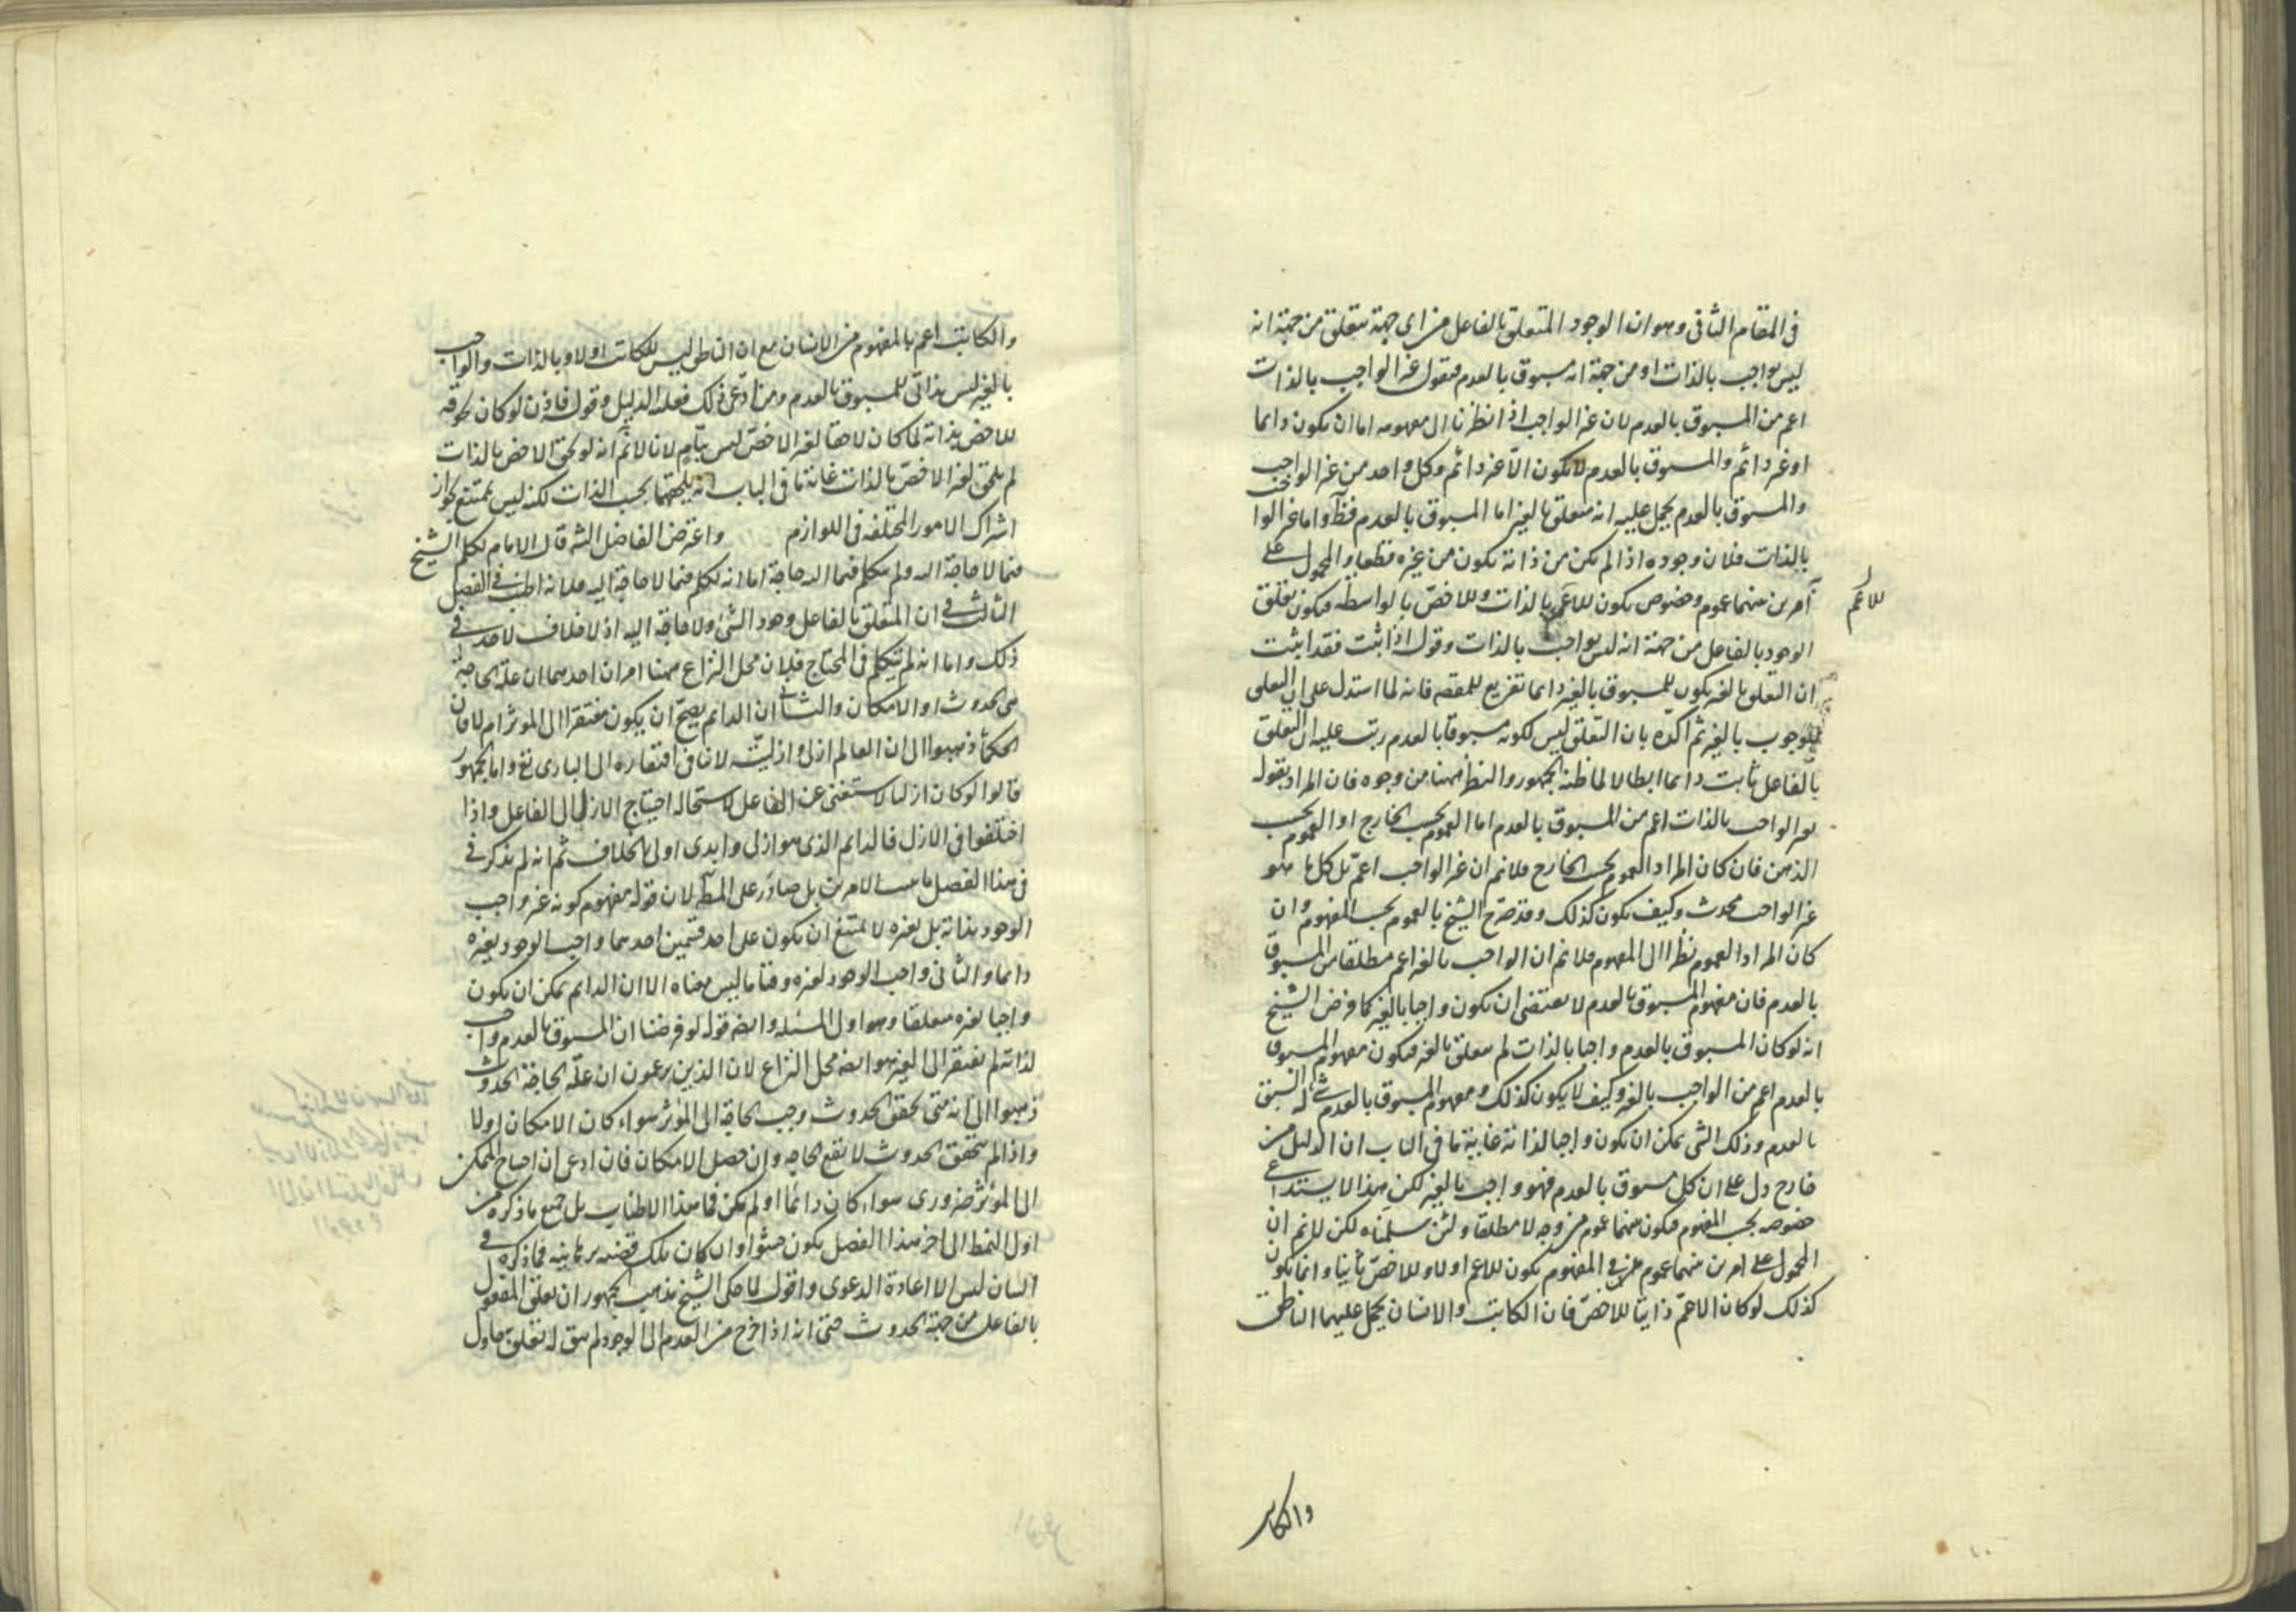 فى المقام الثانى وهو ان الوجود المتعلق بالفاعل من اى جهة يتعلق من جهة انه
ليس بواجب بالذات او من جهة انه مسبوق بالعدم فنقول غير الواجب بالذات
اعم من المسبوق بالعدم لان غير الواجب اذا نظرنا الى مفهومه اما ان يكون دايما
او غير دائم والمسبوق بالعدم لا يكون الا غير دائم وكل واحد من غير الواجب
والمسبوق بالعدم يحمل عليه انه متعلق بالغير اما المسبوق بالعدم فظ واما غير الواجب
بالذات فلان وجوده اذا لم يكن من ذاته يكون من غيره قطعا والمحمول على
امرين بينهما عموم وخصوص يكون للاعم بالذات وللاخص بالواسطة فيكون تعلق
للاعم
الوجود بالفاعل من جهة انه ليس بواجب بالذات وقوله اذا ثبت فقد ثبت
ان التعلق بالغير يكون للمسبوق بالغير دايما تفريع للمقصد فانه لما استدل على ان التعلق
للوجوب بالغير ثم اكده بان التعلق ليس لكونه مسبوقا بالعدم رتب عليه ان التعلق
بالفاعل ثابت دايما ابطالا لما ظنه الجمهور والنظر ههنا من وجوه فان المراد بقوله
غير الواجب بالذات اعم من المسبوق بالعدم اما العموم بحسب الخارج او العموم بحسب
الذهن فان كان المراد العموم بحسب الخارج فلانم ان غير الواجب اعم بل كل ما هو
غير الواجب محدث وكيف يكون كذلك وقد صرح الشيخ بالعموم بحسب المفهوم وان
كان المراد العموم نظرا الى المفهوم فلانم ان الواجب بالغير اعم مطلقا من المسبوق
بالعدم فان مفهوم المسبوق بالعدم لا يقتضى ان يكون واجبا بالغير كما فرض الشيخ
انه لو كان المسبوق بالعدم واجبا بالذات لم يتعلق بالغير فيكون مفهوم المسبوق
بالعدم اعم من الواجب بالغير وكيف لا يكون كذلك ومفهوم المسبوق بالعدم شئ له السبق
بالعدم وذلك الشئ يمكن ان يكون واجبا لذاته غاية ما فى الباب ان الدليل من
خارج دل على ان كل مسبوق بالعدم فهو واجب بالغير لكن هذا لا يستدعى
خصوصه بحسب المفهوم فيكون بينهما عموم من وجه لا مطلقا ولئن سلمناه لكن لانم ان
المحمول على امرين بينهما عموم فى المفهوم يكون للاعم اولا وللاخص ثانيا وانما يكون
كذلك لو كان الاعم ذاتيا للاخص فان الكاتب والانسان يحمل عليهما الناطق
والكاتب
والكاتب اعم بالمفهوم من الانسان مع ان الناطق ليس للكاتب اولا وبالذات والواجب
بالغير ليس بذاتى للمسبوق بالعدم ومن ادعى ذلك فعليه الدليل وقوله فاذن لو كان لحوقه
للاخص بذاته لما كان لاحقا لغير الاخص ليس بتام لانا لانم انه لو لحق الاخص بالذات
لم يلحق لغير الاخص بالذات غاية ما فى الباب انه يلحقهما بحسب الذات لكنه ليس بممتنع لجواز
اشتراك الامور المختلفة فى اللوازم واعترض الفاضل الشه قال الامام تكلم الشيخ
فيما لا حاجة اليه ولم يتكلم فيما اليه حاجة اما انه تكلم فيما لا حاجة اليه فلانه اطنب فى الفصل
الثالث فى ان المتعلق بالفاعل وجود الشئ ولا حاجة اليه اذ لا خلاف لاحد فى
ذلك واما انه لم يتكلم فى المحتاج فلان محل النزاع ههنا امران احدهما ان علة الحاجة
هى الحدوث او الامكان والثانى ان الدائم يصح ان يكون مفتقرا الى الموثر ام لا فان
الحكماء ذهبوا الى ان العالم ازلى وازليته لا تنافى افتقاره الى البارى تع واما الجمهور
قالوا لو كان ازليا لاستغنى عن الفاعل لاستحالة احتياج الازلى الى الفاعل واذا
اختلفوا فى الازل فالدايم الذى هو ازلى وابدى اولى بالخلاف ثم انه لم يذكر فى
فى هذا الفصل الامرين بل صادر على المط لان قوله مفهوم كونه غير واجب
الوجود بذاته بل بغيره لا يمتنع ان يكون على احد قسمين احدهما واجب الوجود بغيره
دايما والثانى واجب الوجود بغيره وقتا ما ليس معناه الا ان الدايم يمكن ان يكون
واجبا بغيره متعلقا وهو اول المسئلة وايضه قوله لو فرضنا ان المسبوق بالعدم واجب
لذاته لم يفتقر الى الغير هو ايضه محل النزاع لان الذين يزعمون ان علة الحاجة الحدوث
ذهبوا الى انه متى تحقق الحدوث وجب الحاجة الى المؤثر سواء كان الامكان اولا
واذا لم يتحقق الحدوث لا تقع الحاجة وان حصل الامكان فان ادعى ان احتياج الممكن
الى المؤثر ضرورى سواء كان دائما او لم يكن فما هذا الاطناب بل جميع ما ذكره من
اول النمط الى اخر هذا الفصل يكون حشوا وان كان تلك قضية برهانية فما ذكره فى
البيان ليس الا اعادة الدعوى واقول لما حكى الشيخ مذهب الجمهور ان تعلق المفعول
بالفاعل من جهة الحدوث حتى انه اذا خرج من العدم الى الوجود لم يبق له تعلق به حاول